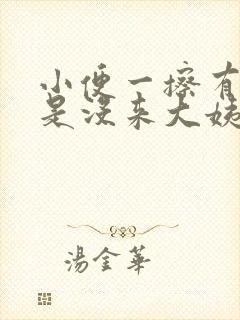 小便一擦有
是没来大姨
湯金華